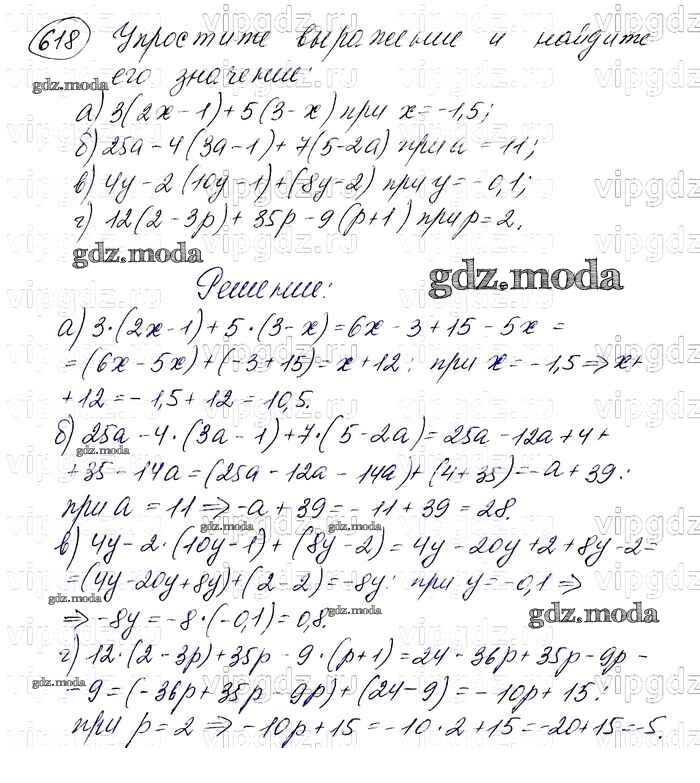 618 Упростите выражение и найдите
его значение:
gdz.moda
а) 3(2x-1)+5(3-x) при x=-1,5;
б) 25a-4(3a-1)+7(5-2a) при a=11;
в) 4y-2(10y-1)+(8y-2) при y=-0,1;
г) 12(2-3p)+35p-9(p+1) при p=2.
gdz.moda
Решение:
gdz.moda
а) 3·(2x-1)+5·(3-x)=6x-3+15-5x=
=(6x-5x)+(-3+15)=x+12: при x=-1,5⇒x+
+12=-1,5+12=10,5.
б) 25a-4·(3a-1)+7·(5-2a)=25a-12a+4+
gdz.moda
+35-14a=(25a-12a-14a)+(4+35)=-a+39:
при a=11⇒-a+39=-11+39=28.
gdz.moda gdz.moda gdz.moda
в) 4y-2·(10y-1)+(8y-2)=4y-20y+2+8y-2=
=(4y-20y+8y)+(2-2)=-8y: при y=-0,1⇒
gdz.moda
⇒-8y=-8·(-0,1)=0,8.
gdz.moda gdz.moda
г) 12·(2-3p)+35p-9·(p+1)=24-36p+35p-9p-
gdz.moda
-9=(-36p+35p-9p)+(24-9)=-10p+15:
при p=2⇒-10p+15=-10·2+15=-20+15=-5.